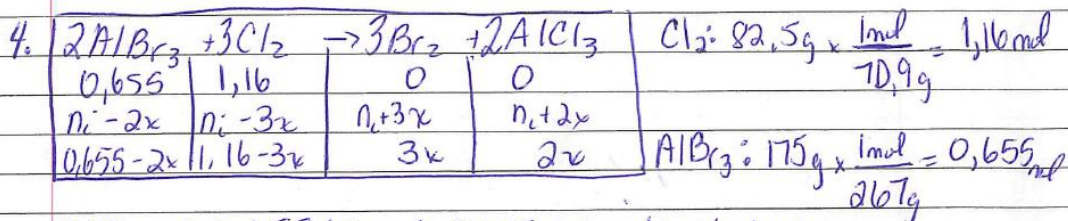 4. 2AlBr3 + 3Cl2 → 3Br2 + 2AlCl3
0,655 1,16 0 0
ni - 2x ni - 3x ni + 3x ni + 2x
0,655 - 2x 1,16 - 3x 3x 2x
Cl2: 82,5g x 1mol/70,9g = 1,16 mol
AlBr3: 175g x 1mol/267g = 0,655 mol